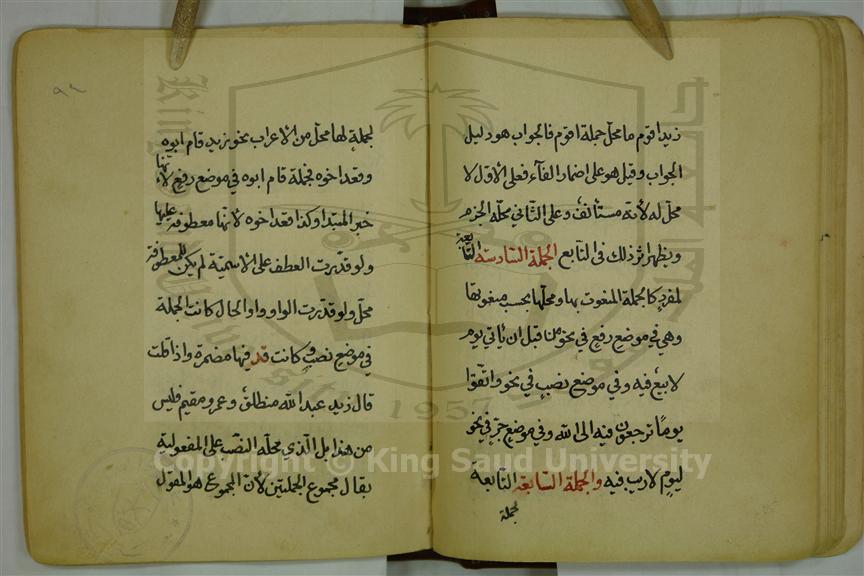 زيد اقوم ما محل جملة اقوم فالجواب هو دليل
الجواب وقيل هو على اضمار الفآء فعلى الأول لا
محل له لأنه مستأنف وعلى الثاني محله الجزم
ويظهر اثر ذلك في التابع الجملة السادسة التابعة
لمفرد كالجملة المنعوت بها ومحلها بحسب منعوتها
وهي في موضع رفع في نحو من قبل ان يأتي يوم
لا بيع فيه وفي موضع نصب في نحو واتقوا
يومًا ترجعون فيه الى الله وفي موضع جر في نحو
ليوم لا ريب فيه والجملة السابعة التابعة
لجملة
٩٢
لجملة لها محل من الأعراب نحو زيد قام ابوه
وقعد اخوه فجملة قام ابوه في موضع رفع لأنها
خبر المبتدا وكذا قعد اخوه لأنها معطوفة عليها
ولو قدّرت العطف على الأسمية لم يكن للمعطوفة
محل ولو قدّرت الواو واو الحال كانت الجملة
في موضع نصب وكانت قد فيها مضمرة واذا قلت
قال زيد عبد الله منطلق وعمرو مقيم فليس
من هذا بل الذي محله النصب على المفعولية
بقال مجموع الجملتين لأن المجموع هو المقول
Copyright © King Saud University
1957